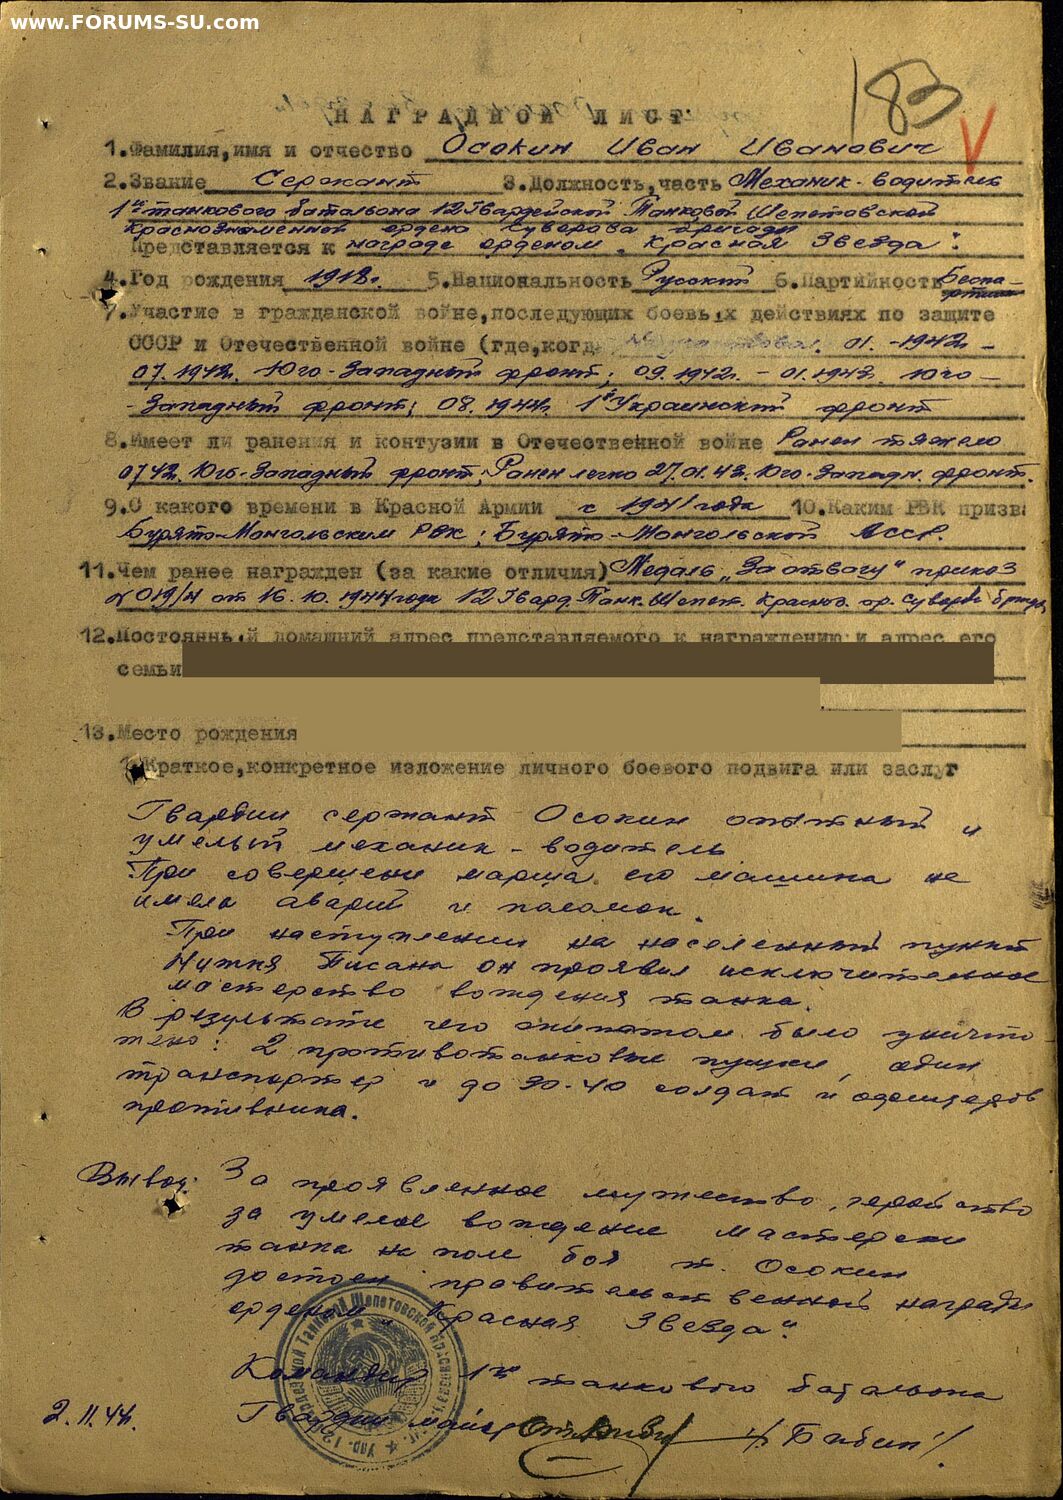 www.FORUMS-SU.com
183
V
НАГРАДНОЙ ЛИСТ
1.Фамилия,имя и отчество Осокин Иван Иванович
2.Звание Сержант 3.Должность,часть Механик-водитель
1го танкового батальона 12 Гвардейской Танковой Шепетовской
Краснознаменной ордена Суворова бригады
Представляется к награде орденом „Красная Звезда".
4.Год рождения 1918г. 5.Национальность Русский 6.Партийность Беспа-
ртийн
7.Участие в гражданской войне,последующих боевых действиях по защите
СССР и Отечественной войне (где,когда 01.-1942-
07.1942г. Юго-Западный фронт; 09.1942г.-01.1943г. Юго-
-Западный фронт; 08.1944г. 1й Украинский фронт
8.Имеет ли ранения и контузии в Отечественной войне Ранен тяжело
07.42г. Юго-Западный фронт; Ранен легко 27.01.43г. Юго-Западн. фронт.
9.С какого времени в Красной Армии с 1941 года 10.Каким РВК призва
Бурято-Монгольским РВК; Бурято-Монгольской АССР.
11.Чем ранее награжден (за какие отличия) Медаль „За отвагу" приказ
№019/н от 16.10.1944года 12 Гвард. Танк. Шепет. Красноз. ор. Суворова бригады
12.Постоянный домашний адрес представляемого к награждению и адрес его
семьи
13.Место рождения
Краткое,конкретное изложение личного боевого подвига или заслуг
Гвардии сержант Осокин опытный и
умелый механик-водитель
При совершени марша его машина не
имела аварий и поломок.
При наступлении на населенный пункт
Писана он проявил исключительное
мастерство вождения танка.
В результате чего экипажом было уничто
жено: 2 противотанковые пушки, один
транспортер и до 30-40 солдат и офицеров
противника.
Вывод: За проявленное мужество, геройство
за умелое вождение мастерски
танка на поле боя т. Осокин
достоен правительственной награды
орденом „Красная Звезда".
Командир 1го танкового батальона
2.11.44г. Гвардии майор /Бибин/